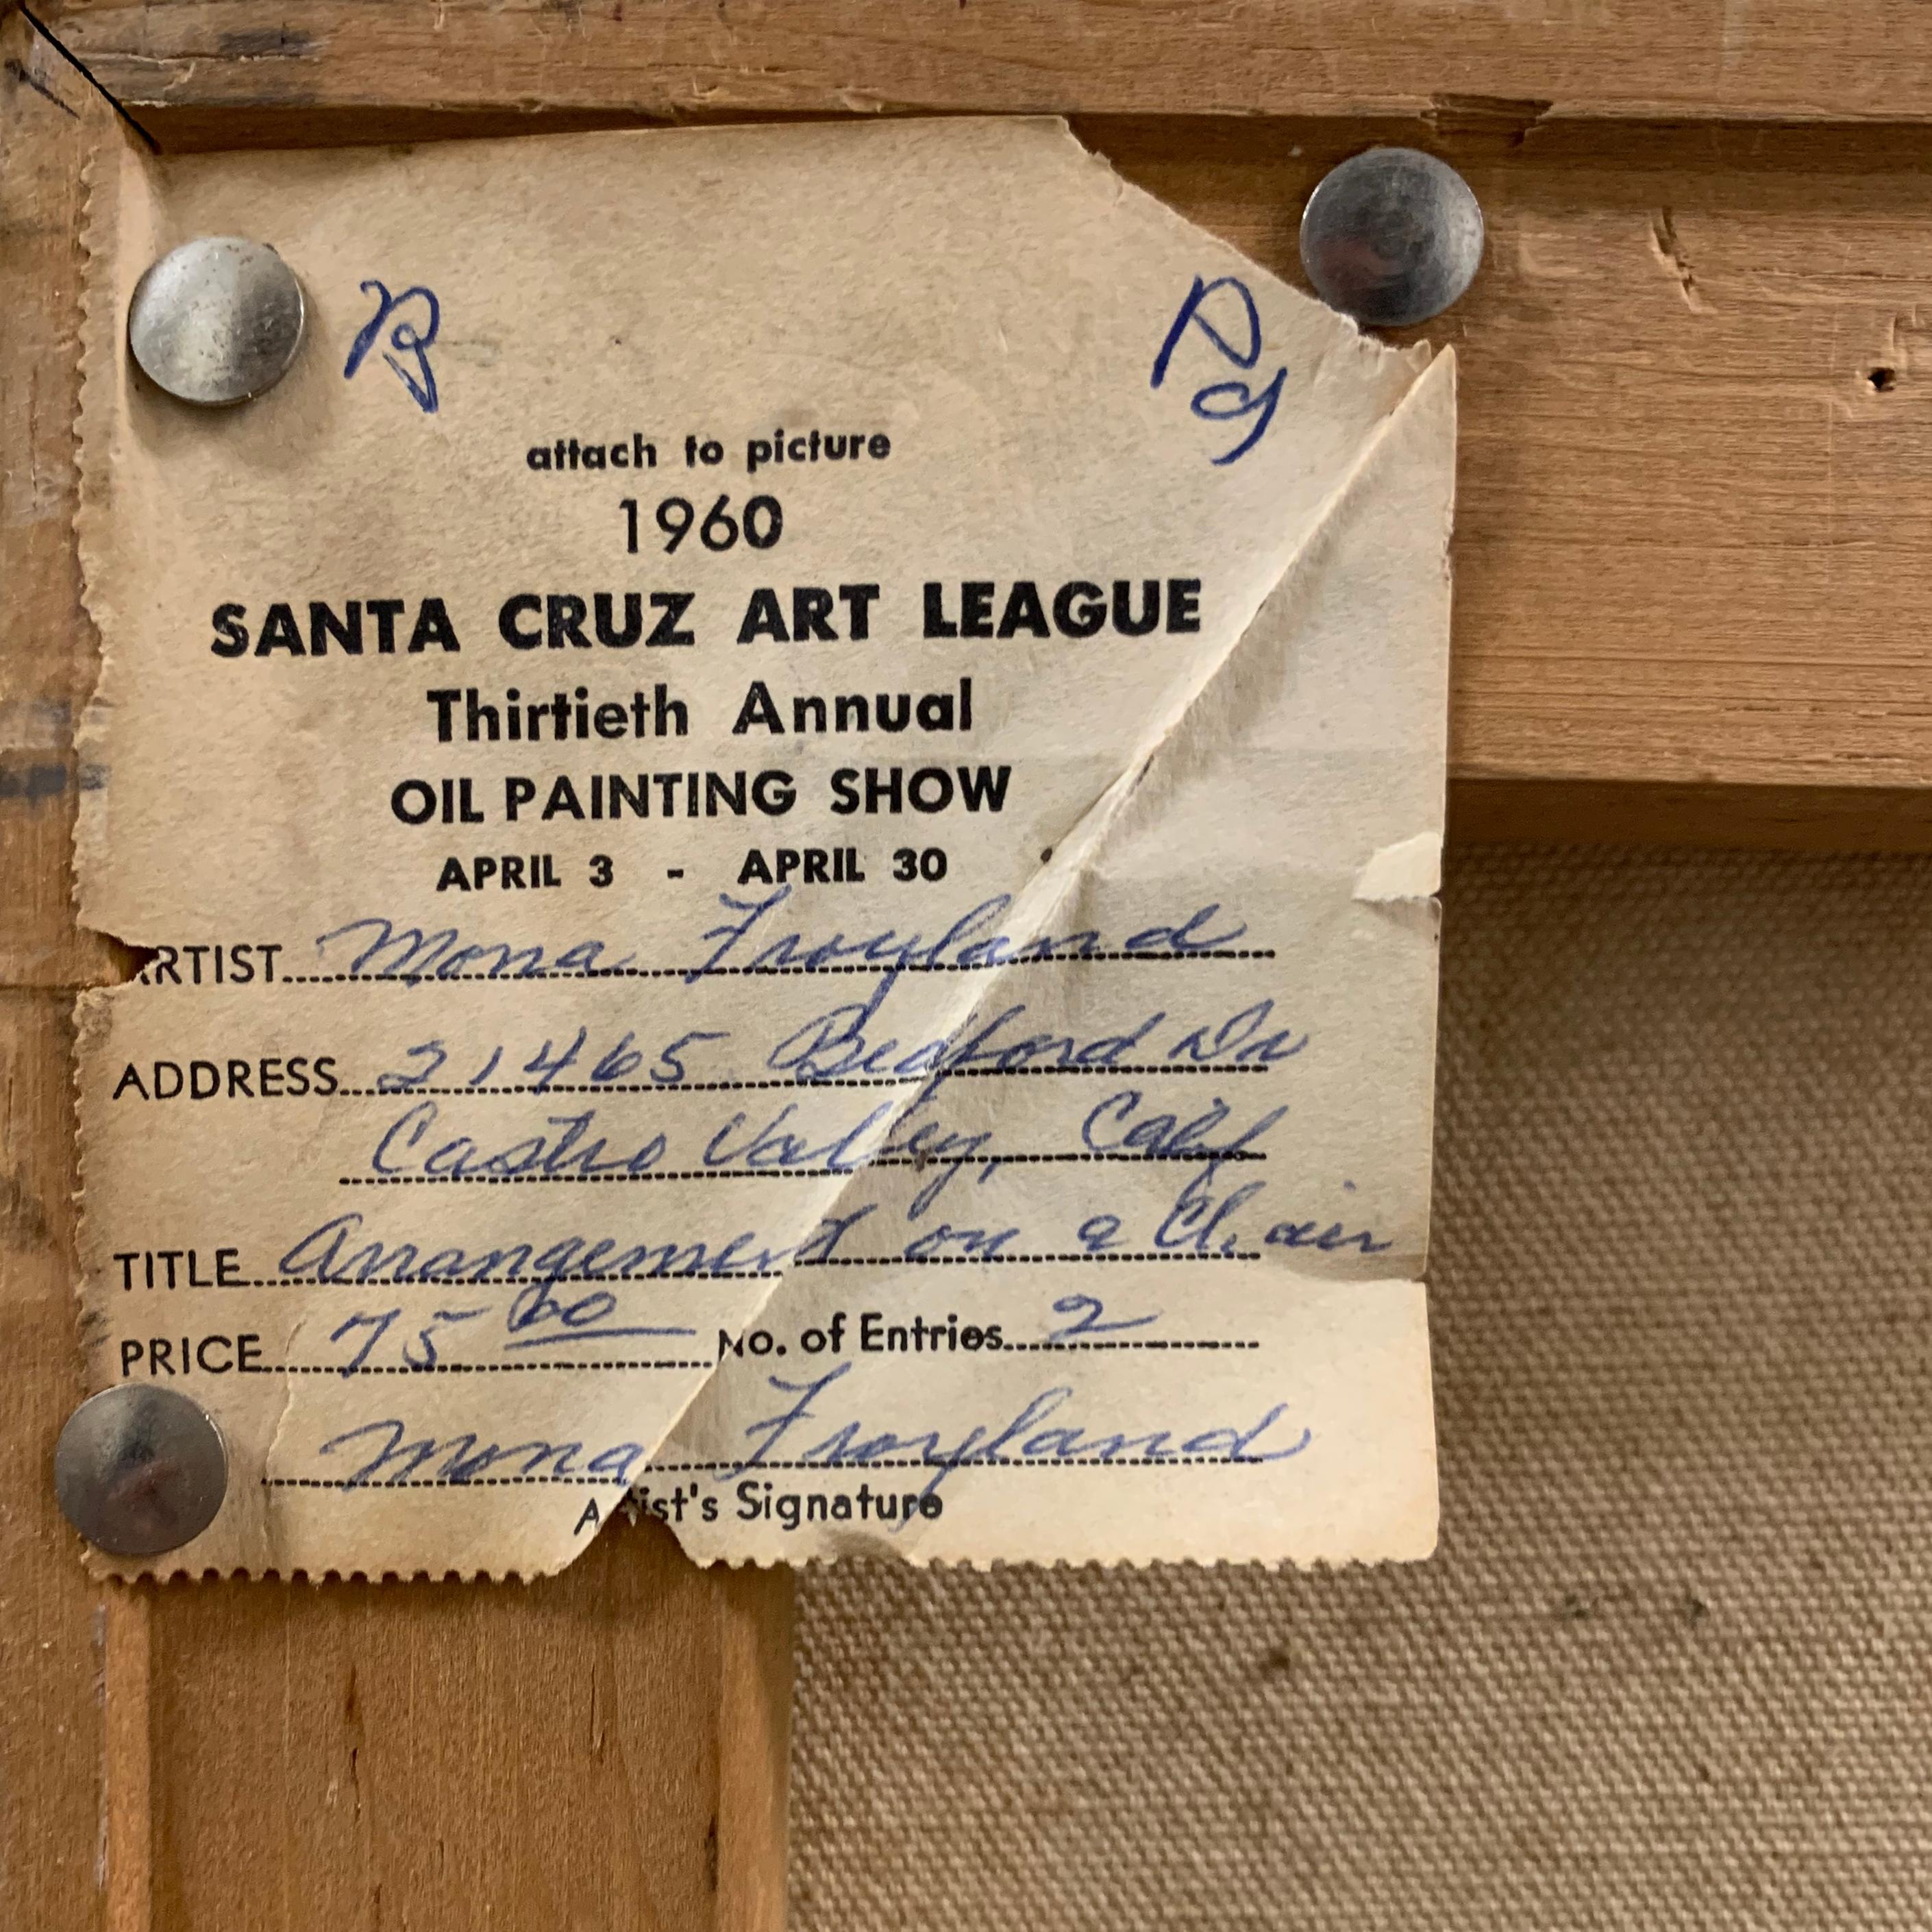 attach to picture
1960
SANTA CRUZ ART LEAGUE
Thirtieth Annual
OIL PAINTING SHOW
APRIL 3 - APRIL 30
ARTIST Mona Froyland
ADDRESS 21465 Bedford Dr
Castro Valley, Calif
TITLE Arrangement on a Chair
PRICE 75 00 No. of Entries 2
Mona Froyland
Artist's Signature